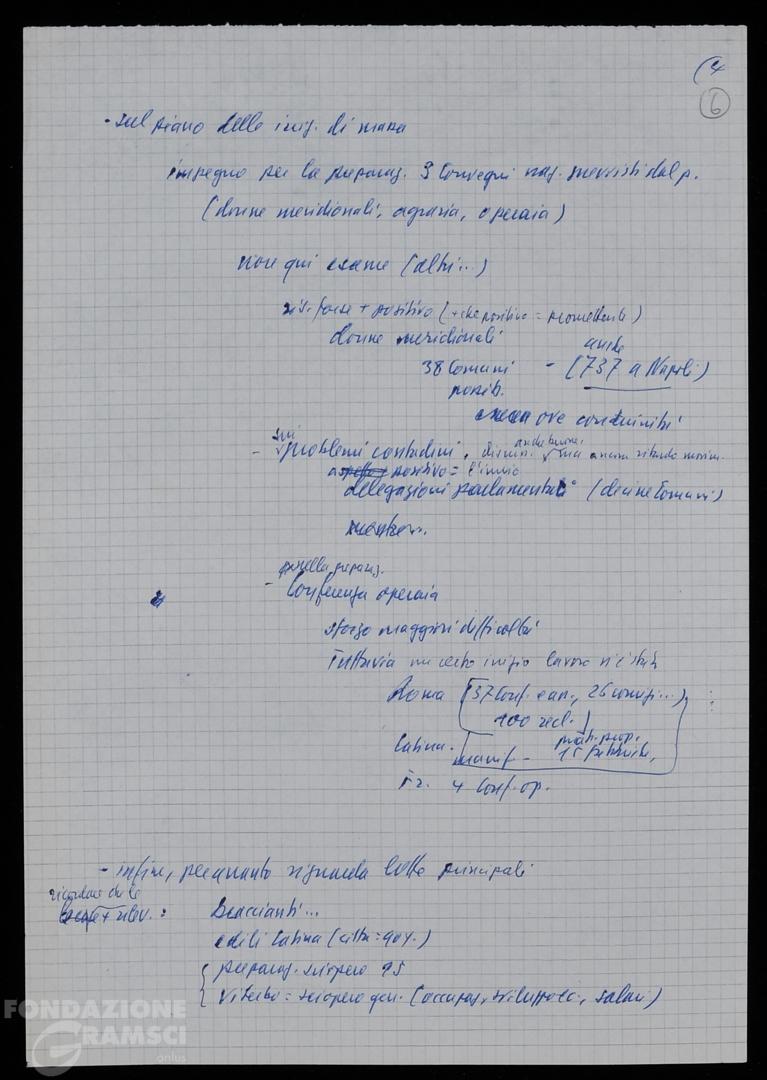 (4
6
- sul piano delle iniz. di massa
impegno per la preparaz. 3 Convegni naz. previsti dal p.
(donne meridionali, agraria, operaia)
non qui esame (altri...)
ris. forse + positivo (+ che positivo = promettente)
donne meridionali
38 Comuni - (737 a Napoli)
anche
possib.
ove continuità
- sui problemi contadini,
anche ma ancora ritardo
positivo = l'invio
delegazioni parlamentari (decine Comuni)
mentre..
- nella preparaz.
Conferenza operaia
sforzo maggiori difficoltà
Tuttavia un certo inizio lavoro vi è stato
Roma [37 Conf. 26 ...)
100 recl.)
Latina. manif - 15 fabbriche,
Fr. 4 Conf. op.
- infine, per quanto riguarda lotte principali
ricordare che le
+ rilev. : Braccianti...
edili Latina (
preparaz. sciopero 95
Viterbo = sciopero gen. (occupaz, sviluppo ec., salari)
FONDAZIONE
GRAMSCI
onlus